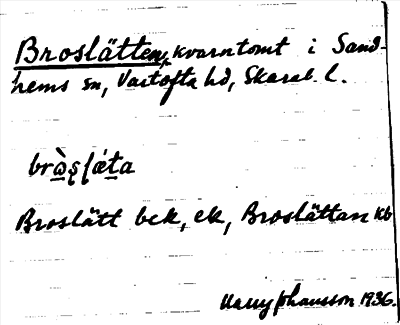 Broslätten, kvarntomt i Sand-
hems sn, Vartofta hd, Skarab. l.
Broslätt bck, ek, Broslättan kb
Harry Johansson 1936.